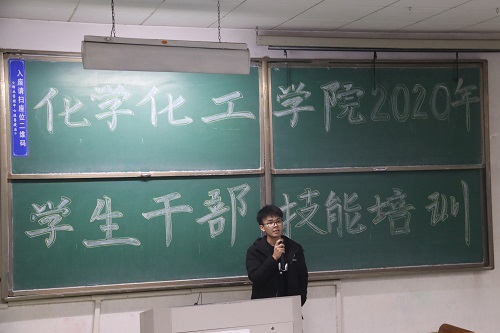 入座请扫座位二维码
化学化工学院2020年
学生干部技能培训